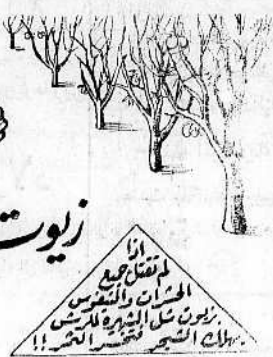 زيوت
اذا
لم تقتل جميع
الحشرات والنفوس
زيوت شل الشهيرة للرش
يهلك الشجر فتخسر الثمر!!